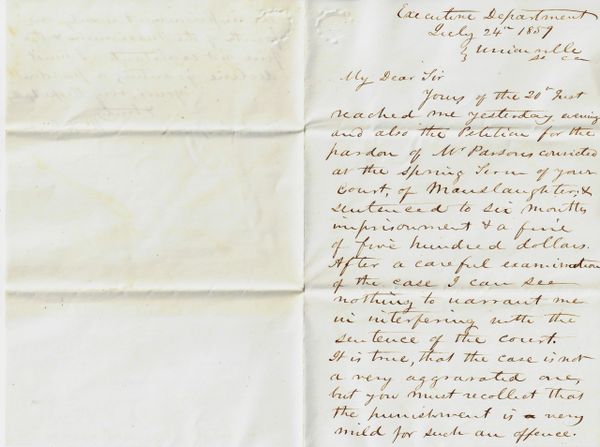 Executive Department
July 24th 1857
Unionville
So Ca
My Dear Sir
Yours of the 20th Inst
reached me yesterday evening
and also the Petition for the
pardon of Mr Parsons convicted
at the Spring Term of your
Court, of Manslaughter, &
sentenced to six months
imprisonment & a fine
of five hundred dollars.
After a careful examination
of the case I can see
nothing to warrant me
in interfering with the
sentence of the court.
It is true, that the case is not
a very aggravated one,
but you must recollect that
the punishment is a very
mild for such an offence.